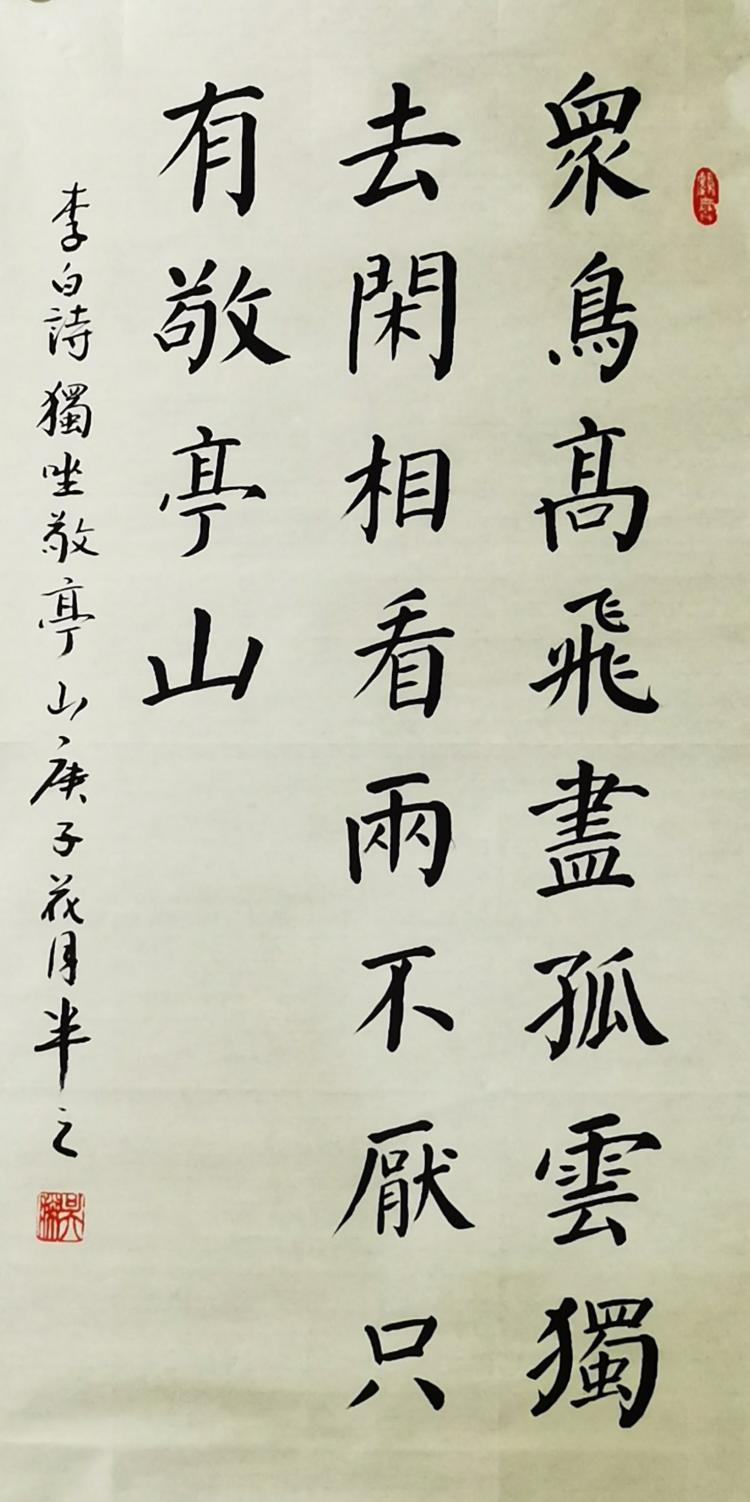 眾鳥高飛盡孤雲獨
去閑相看兩不厭只
有敬亭山
李白詩獨坐敬亭山庚子花月半之